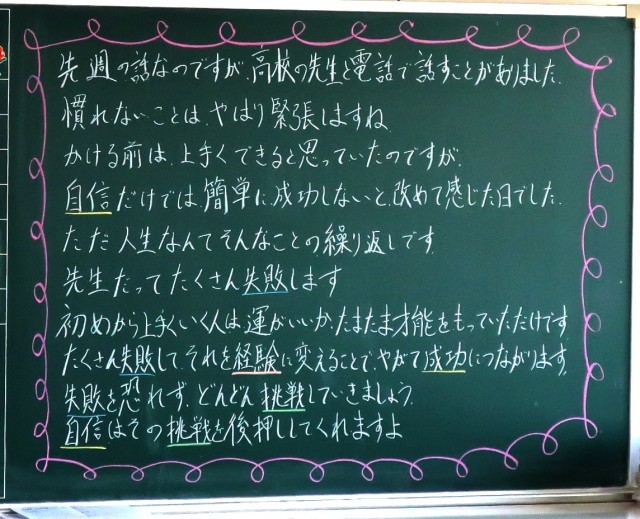 先週の話なのですが、高校の先生と電話で話すことがありました。
慣れないことは、やはり緊張しますね
かける前は、上手くできると思っていたのですが、
自信だけでは、簡単に成功しないと、改めて感じた日でした。
ただ人生なんてそんなことの繰り返しです。
先生だってたくさん失敗します
初めから上手くいく人は運がいいか、たまたま才能をもっていただけです。
たくさん失敗して、それを経験に変えることで、やがて成功につながります。
失敗を恐れず、どんどん挑戦していきましょう。
自信はその挑戦を後押ししてくれますよ